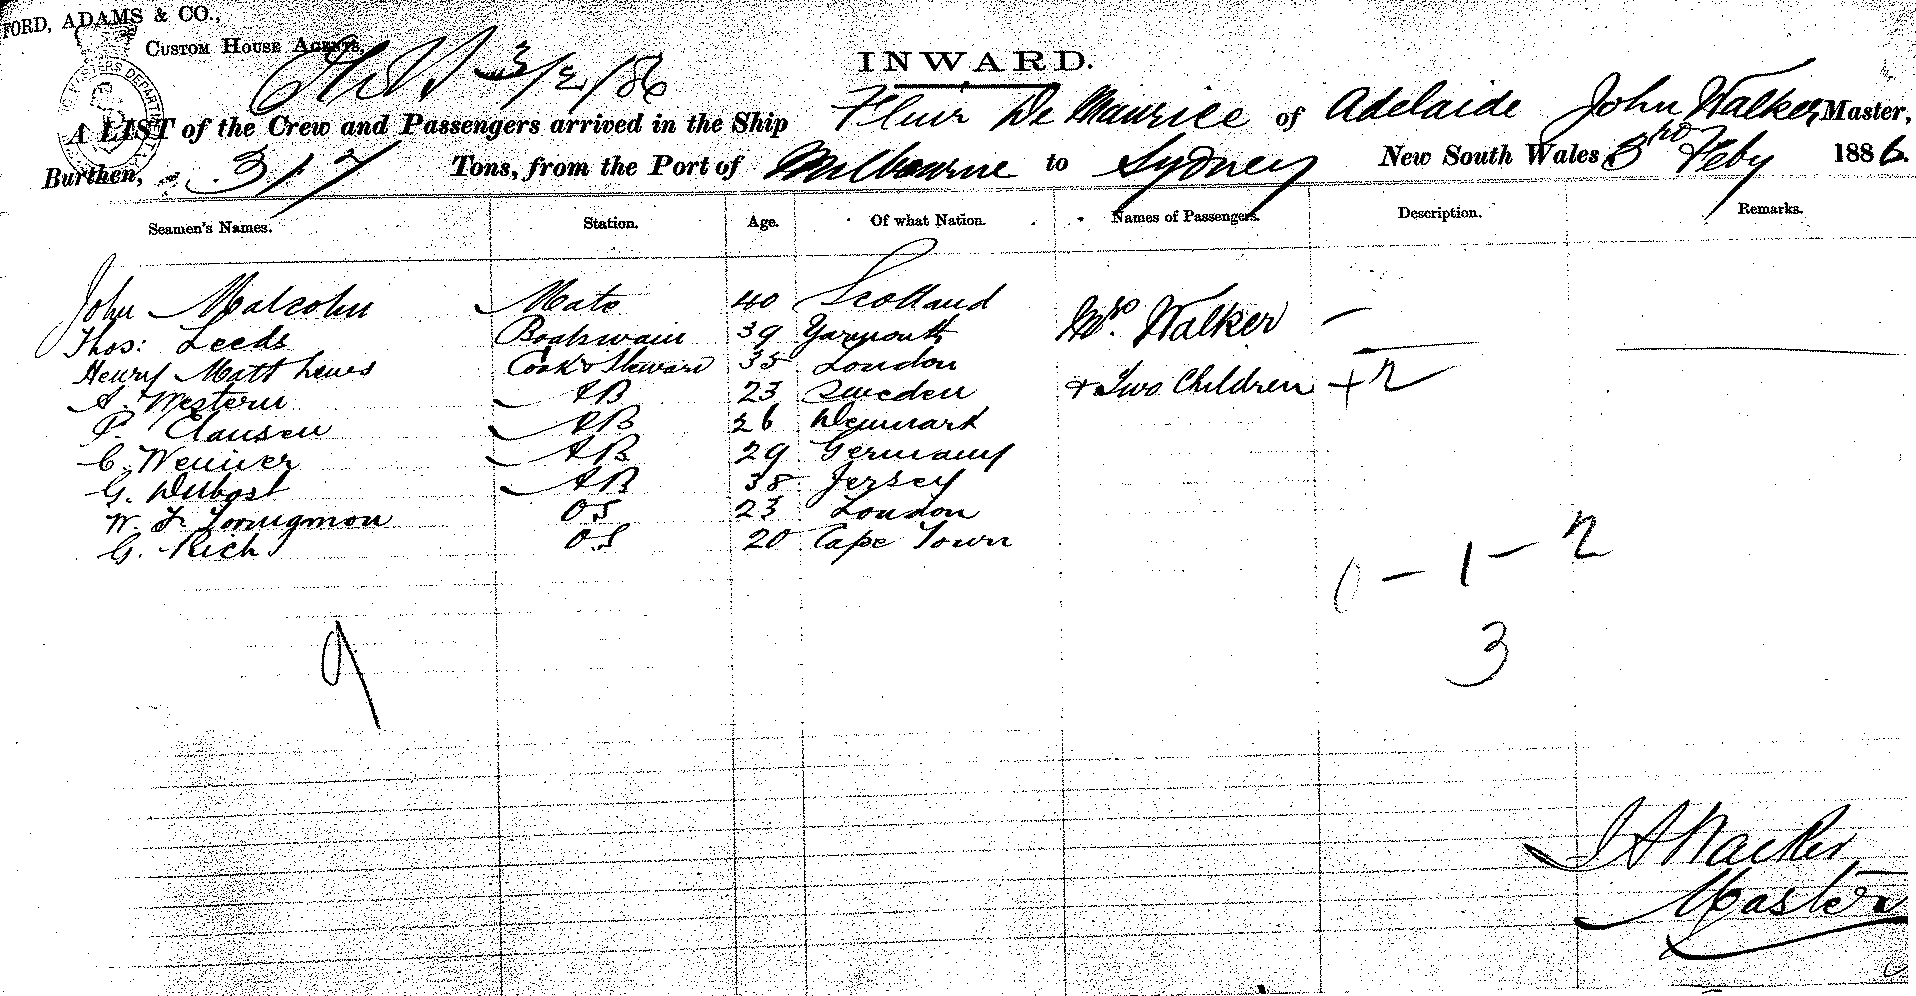 FORD, ADAMS & CO.,
CUSTOM HOUSE AGENTS,
3/2/86
INWARD.
A LIST of the Crew and Passengers arrived in the Ship Fleur De Maurice of Adelaide John Walker, Master,
Burthen, 317 Tons, from the Port of Melbourne to Sydney New South Wales 3rd Feby 1886.
Seamen's Names. Station. Age. Of what Nation. Names of Passengers. Description. Remarks.
John Malcohn Mate 40 Scotland Mrs. Walker —
Thos: Leeds Boatswain 39 Yarmouth
Henry Matthews Cook & Steward 35 London
A. Western AB 23 Sweden & Two Children + 2
P. Clausen AB 26 Denmark
C. Wenner AB 29 Germany
G. Delbost AB 38 Jersey
W. F. OS 23 London
G. Rich OS 20 Cape Town
0 — 1 — 2
3
9
J A Walker
Master